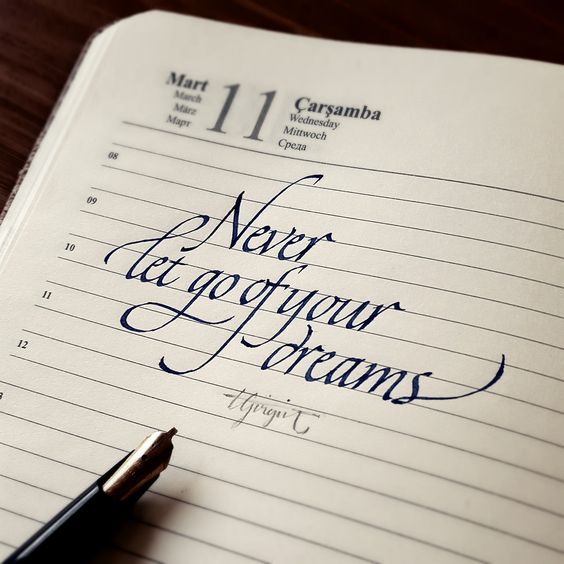 Mart
March
März
Март
11
Çarşamba
Wednesday
Mittwoch
Среда
08
09
Never
10
let go of your
11
dreams
12